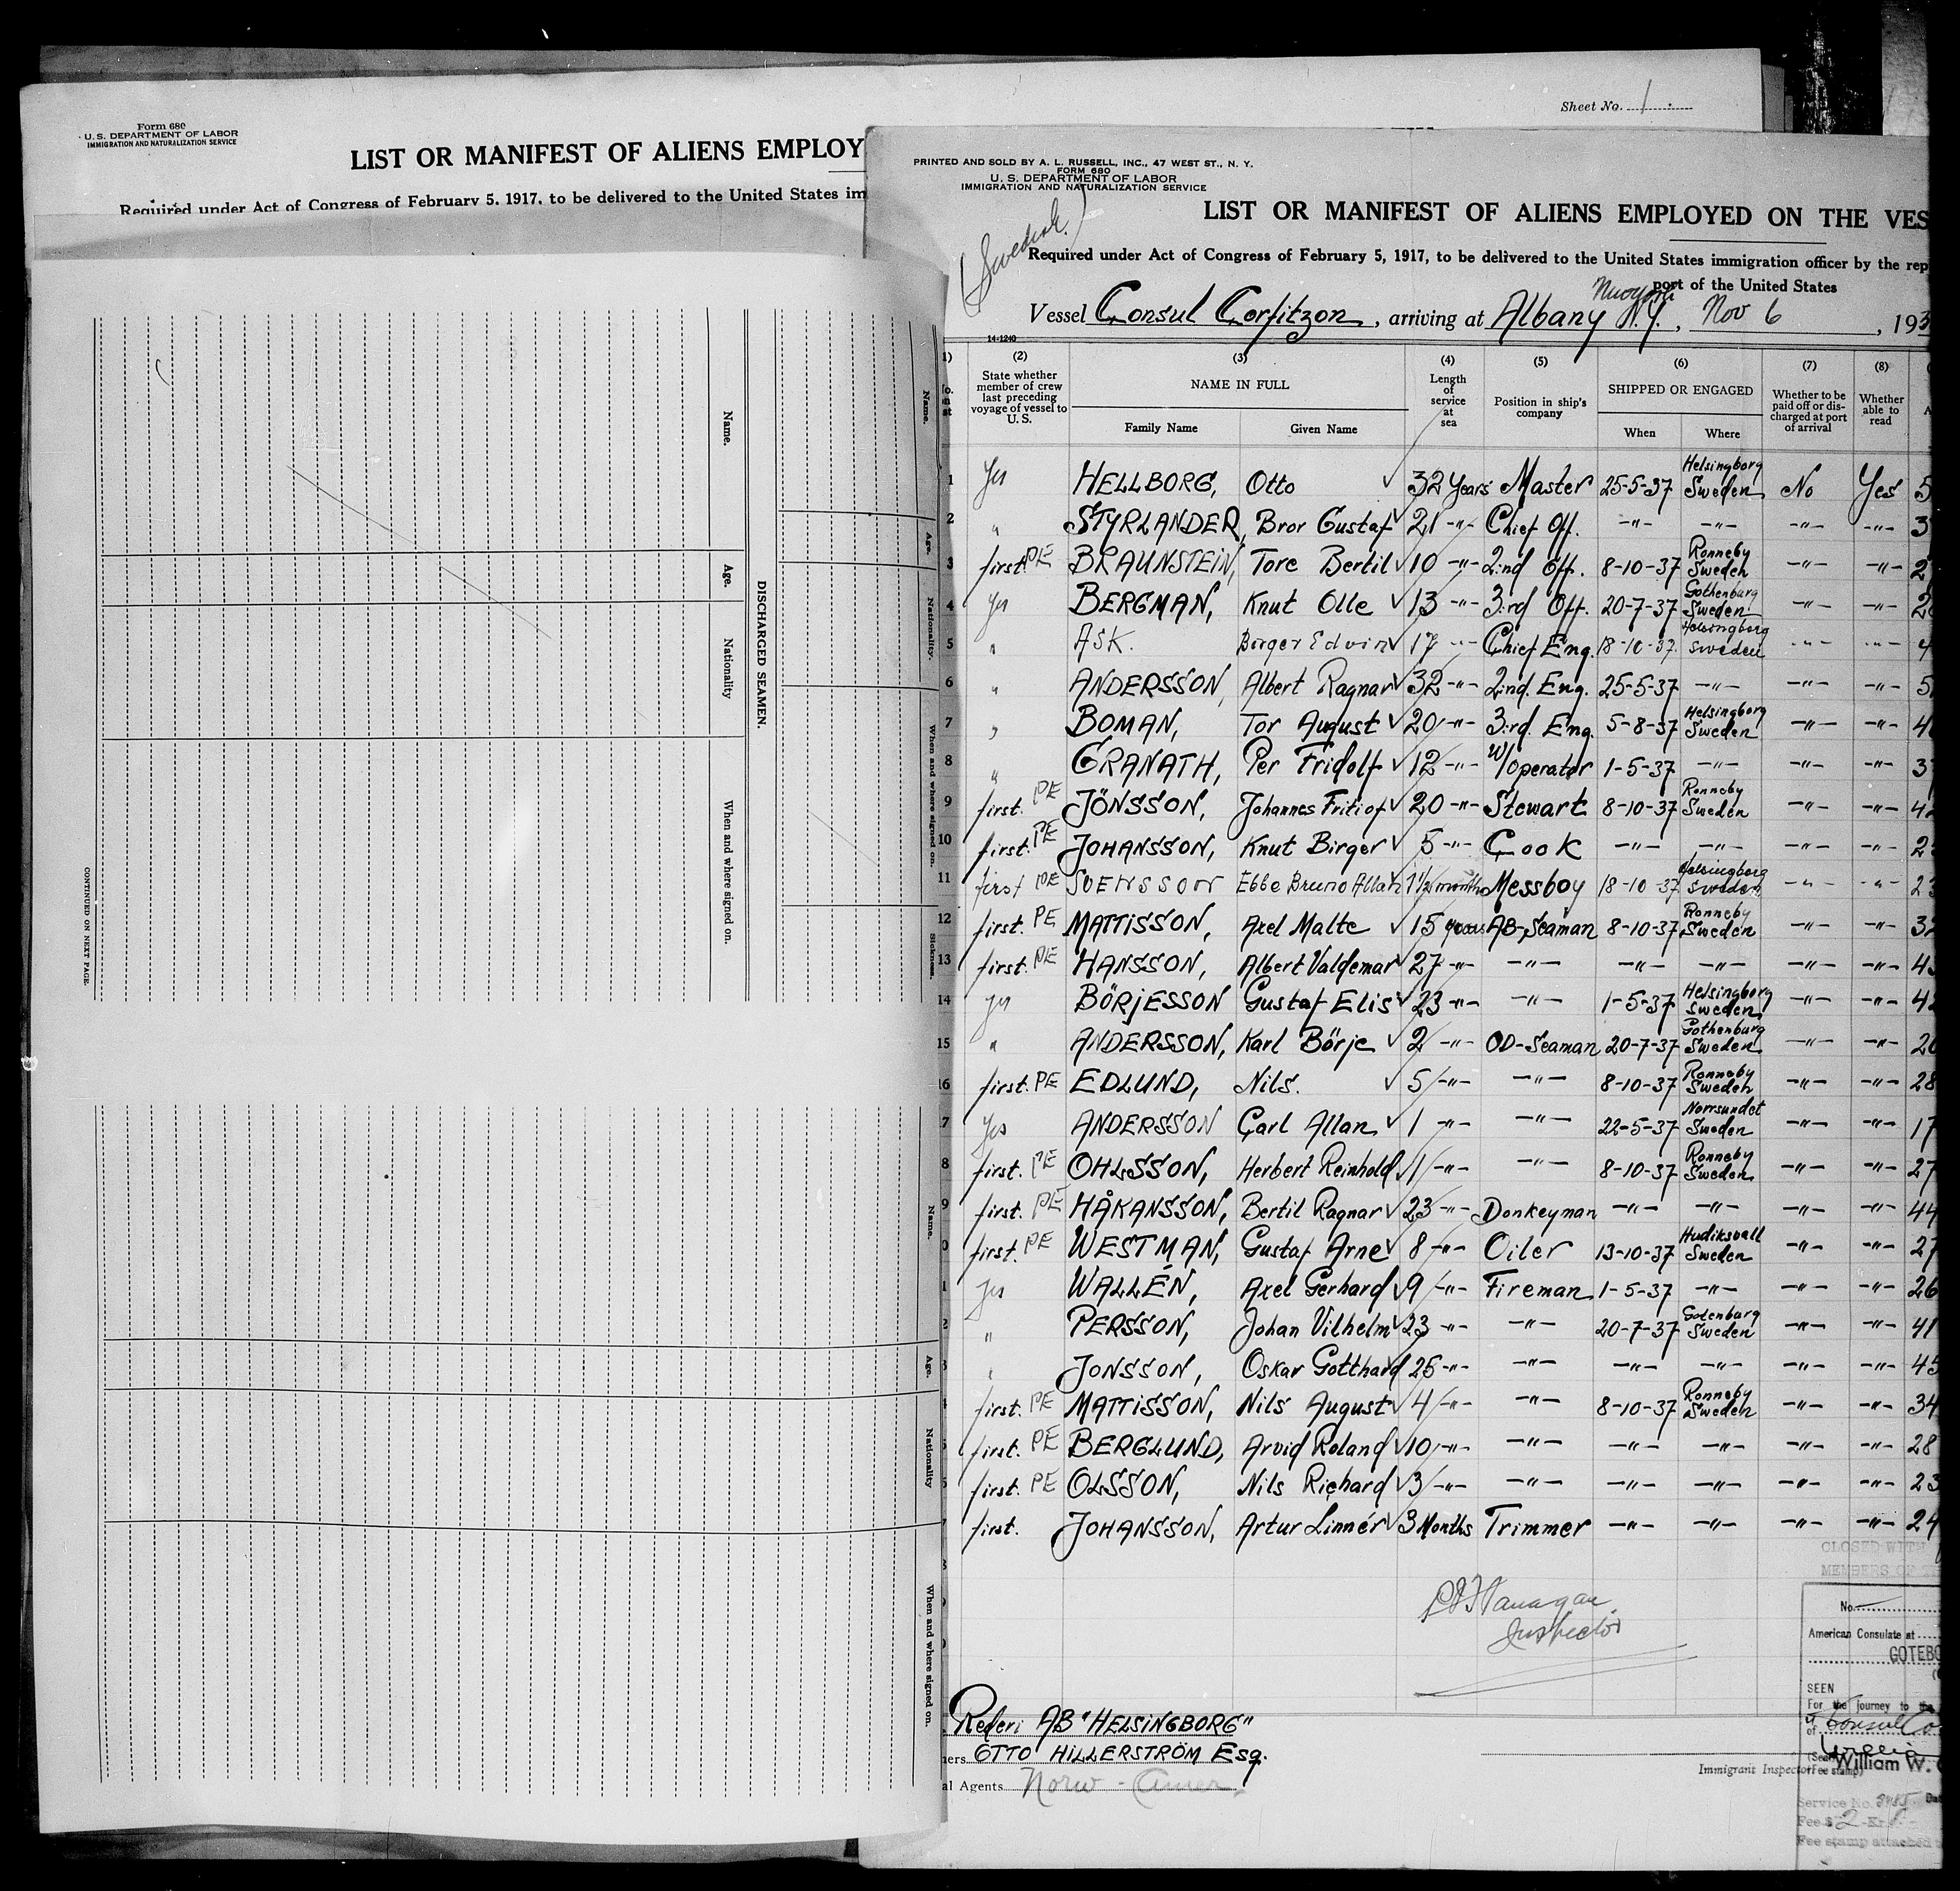 Sheet No. 1
Form 680
U. S. DEPARTMENT OF LABOR
IMMIGRATION AND NATURALIZATION SERVICE
LIST OR MANIFEST OF ALIENS EMPLOY
Required under Act of Congress of February 5, 1917, to be delivered to the United States im
Name.
Age.
Nationality
When and where signed on.
DISCHARGED SEAMEN.
CONTINUED ON NEXT PAGE.
Name.
Age.
Nationality.
When and where signed on.
Sickness.
Name.
Age.
Nationality
When and where signed on.
PRINTED AND SOLD BY A. L. RUSSELL, INC., 47 WEST ST., N. Y.
FORM 680
U. S. DEPARTMENT OF LABOR
IMMIGRATION AND NATURALIZATION SERVICE
(Swedish)
LIST OR MANIFEST OF ALIENS EMPLOYED ON THE VES
Required under Act of Congress of February 5, 1917, to be delivered to the United States immigration officer by the rep
port of the United States
Vessel Consul Corfitzon, arriving at Albany N.Y., Nov 6, 193
14-1240
(2) (3) (4) (5) (6) (7) (8)
State whether member of crew last preceding voyage of vessel to U. S.
NAME IN FULL
Family Name Given Name
Length of service at sea
Position in ship's company
SHIPPED OR ENGAGED
When Where
Whether to be paid off or discharged at port of arrival
Whether able to read
1 Yes HELLBORG, Otto 32 Years Master 25-5-37 Helsingborg Sweden No Yes 5
2 " STYRLANDER, Bror Gustaf 21 -"- Chief Off. -"- -"- -"- -"- 3
3 first. PE BRAUNSTEIN, Tore Bertil 10 -"- 2:nd Off. 8-10-37 Ronneby Sweden -"- -"- 2
4 Yes BERGMAN, Knut Olle 13 -"- 3:rd Off. 20-7-37 Gothenburg Sweden -"- -"- 2
5 " ASK. Birger Edvin 17 -"- Chief Eng. 18-10-37 Helsingborg Sweden -"- -"- 4
6 " ANDERSSON, Albert Ragnar 32 -"- 2:nd. Eng. 25-5-37 -"- -"- -"- 5
7 " BOMAN, Tor August 20 -"- 3:rd. Eng. 5-8-37 Helsingborg Sweden -"- -"- 4
8 " GRANATH, Per Fridolf 12 -"- W/Operator 1-5-37 -"- -"- -"- 3
9 first. PE JÖNSSON, Johannes Fritiof 20 -"- Stewart 8-10-37 Ronneby Sweden -"- -"- 42
10 first. PE JOHANSSON, Knut Birger 5 -"- Cook -"- -"- -"- -"- 2
11 first PE SVENSSON Ebbe Bruno Allan 1½ months Messboy 18-10-37 Helsingborg Sweden -"- -"- 23
12 first. PE MATTISSON, Axel Malte 15 years AB-Seaman 8-10-37 Ronneby Sweden -"- -"- 32
13 first. PE HANSSON, Albert Valdemar 27 -"- -"- -"- -"- -"- -"- 4
14 yes BÖRJESSON Gustaf Elis 23 -"- -"- 1-5-37 Helsingborg Sweden -"- -"- 42
15 " ANDERSSON, Karl Börje 2 -"- OD-Seaman 20-7-37 Gothenburg Sweden -"- -"- 20
16 first. PE EDLUND, Nils. 5 -"- -"- 8-10-37 Ronneby Sweden -"- -"- 28
7 Yes ANDERSSON Carl Allan 1 -"- -"- 22-5-37 Norrsundet Sweden -"- -"- 17
8 first. PE OHLSSON, Herbert Reinhold 1 -"- -"- 8-10-37 Ronneby Sweden -"- -"- 27
9 first. PE HÅKANSSON, Bertil Ragnar 23 -"- Donkeyman -"- -"- -"- -"- 44
0 first. PE WESTMAN, Gustaf Arne 8 -"- Oiler 13-10-37 Hudiksvall Sweden -"- -"- 27
1 Yes WALLÉN, Axel Gerhard 9 -"- Fireman 1-5-37 -"- -"- -"- 26
2 " PERSSON, Johan Vilhelm 23 -"- -"- 20-7-37 Gotenburg Sweden -"- -"- 41
" JONSSON, Oskar Gotthard 25 -"- -"- -"- -"- -"- -"- 45
first. PE MATTISSON, Nils August 4 -"- -"- 8-10-37 Ronneby Sweden -"- -"- 34
first. PE BERGLUND, Arvid Roland 10 -"- -"- -"- -"- -"- -"- 28
first. PE OLSSON, Nils Richard 3 -"- -"- -"- -"- -"- -"- 23
first. JOHANSSON, Artur Linnér 3 Months Trimmer -"- -"- -"- -"- 24
CLOSED WITH
MEMBERS OF
Flanagan
Inspector
No.
American Consulate at
GOTEBO
SEEN
For the journey to the
of Consul Co
(Seal)
(Fee stamp)
William W.
Service No.
Fee $ 2 -Kr
Fee stamp attached
Rederi AB "HELSINGBORG"
ners OTTO HILLERSTRÖM Esq.
al Agents Norw-Amer
Immigrant Inspector